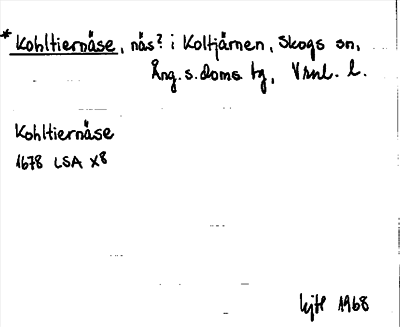 * Kohltiernäse, näs? i Koltjärnen, Skogs sn,
Ång. s. doms bg, Vrnl. l.
Kohltiernäse
1678 LSA X8
1968